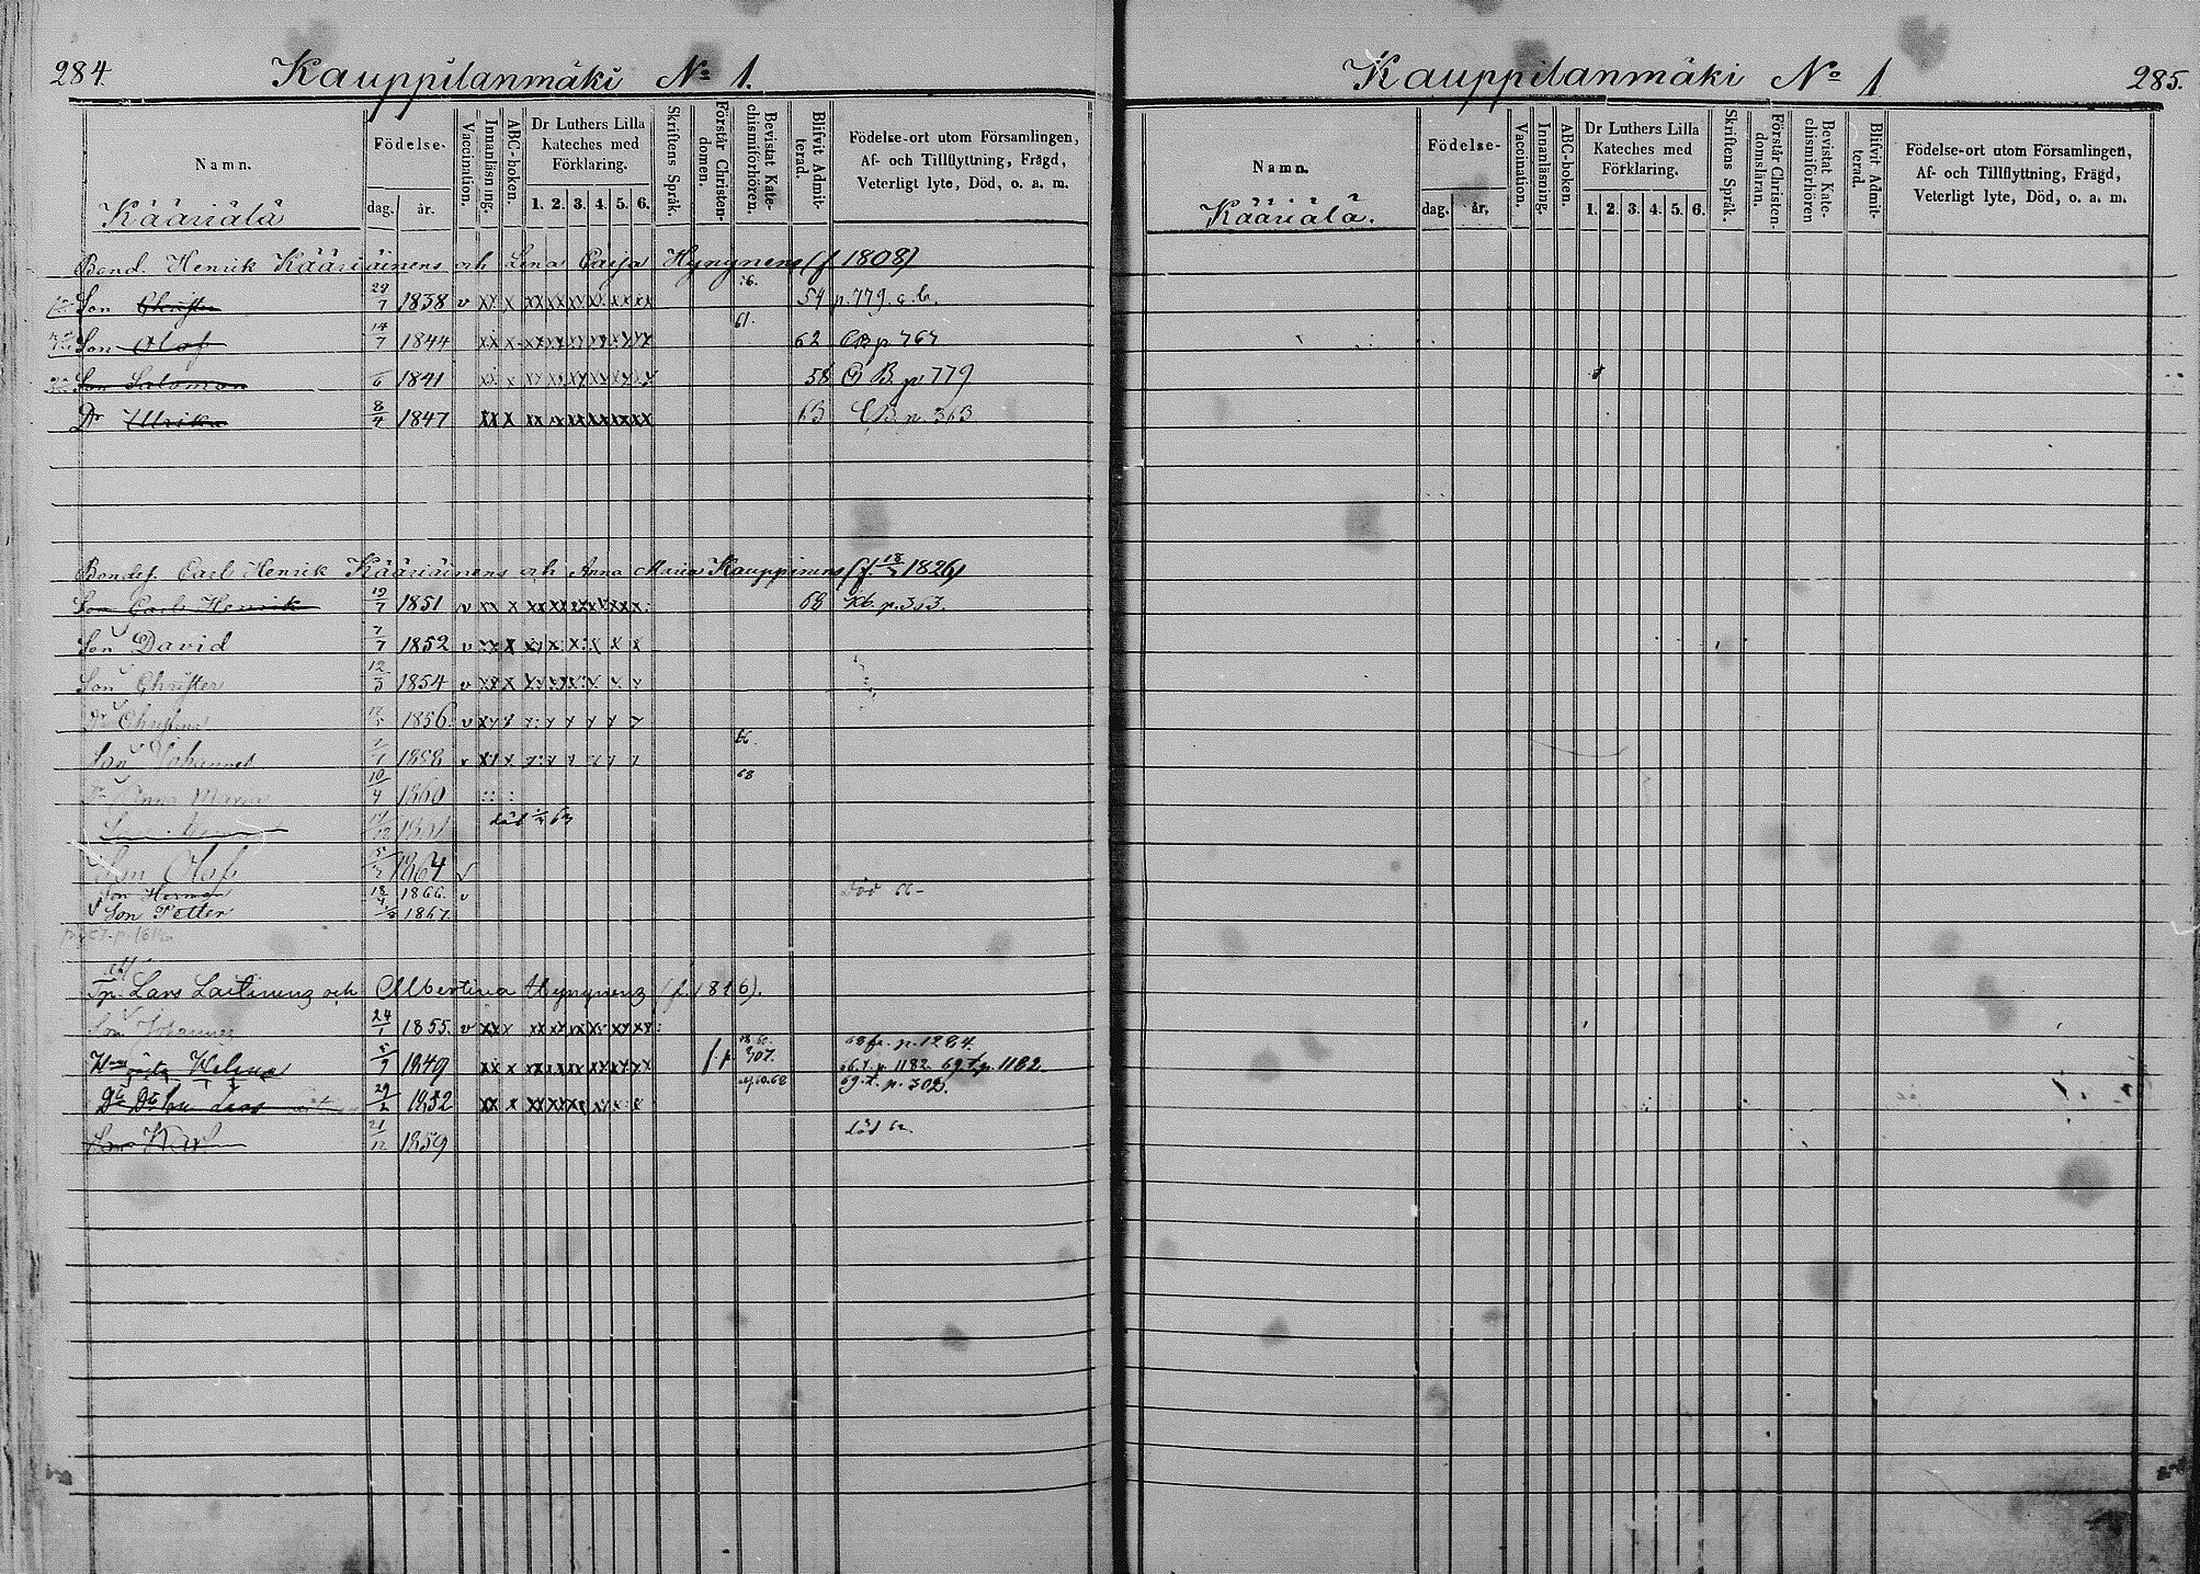 284.
Kauppilanmäki No 1.
Namn.
Kääriälä
Födelse-
dag. år.
Vaccination.
Innanläsning.
ABC-boken.
Dr Luthers Lilla
Kateches med
Förklaring.
1. 2. 3. 4. 5. 6.
Skriftens Språk.
Förstår Christen-
domen.
Bevistat Kate-
chismiförhören.
Blifvit Admit-
terad.
Födelse-ort utom Församlingen,
Af- och Tillflyttning, Frägd,
Veterligt lyte, Död, o. a. m.
Bond. Henrik Kääriäinens och Lena Caisa Hynynens (f. 1808)
Son Christer 29/7 1838 v xx x xx xx xx xx xx xx 54 p. 779. c.b.
61.
Son Olof 14/7 1844 xx x xx xx xx xx xx xx 62 CB p 767
Son Salomon 1841 xx x xx xx xx xx xx xx 58 C B. p. 779
Dr Ulrika 8/4 1847 xx x xx xx xx xx xx xx 63 CB. p. 363
Bondes. Carl Henrik Kääriäinens och Anna Maria Kauppinens (f. 1826)
Son Carl Henrik 19/7 1851 v xx x xx xx xx xx xx x 68 Kb. p. 363.
Son David 7/7 1852 v x x x x x x x
Son Christer 12/3 1854 v xx x
Dr Christina 1856. v xx x
66.
Son Johannes 1858 v
68
Dr Anna Maria 10/4 1860
död 63
Son Olof 1864 v
Son Herman 18/4 1866. v död 66
Son Petter 1867
Lars Laitinens och Albertina Hynynens (f. 1816).
Son Johannes 24/1 1855. v xx x xx xx xx xx xx xx
Helena 1849 xx x xx xx xx xx xx xx f. p. 307. 68 fr. p. 1284.
66. t. p. 1182. 69 t. p. 1182.
Dr 29/2 1852 xx x xx xx xx 69. t. p. 302.
Son Karl 21/12 1859 död
Kauppilanmäki No 1
285.
Namn.
Kääriälä.
Födelse-
dag. år,
Vaccination.
Innanläsning.
ABC-boken.
Dr Luthers Lilla
Kateches med
Förklaring.
1. 2. 3. 4. 5. 6.
Skriftens Språk.
Förstår Christen-
domslaran.
Bevistat Kate-
chismiförhören
Blifvit Admit-
terad.
Födelse-ort utom Församlingen,
Af- och Tillflyttning, Frägd,
Veterligt lyte, Död, o. a. m.